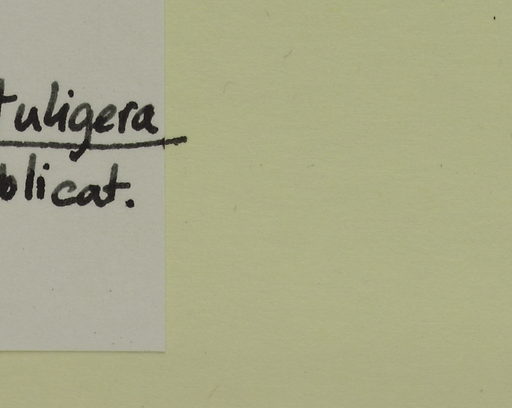 tuligera
blicat.